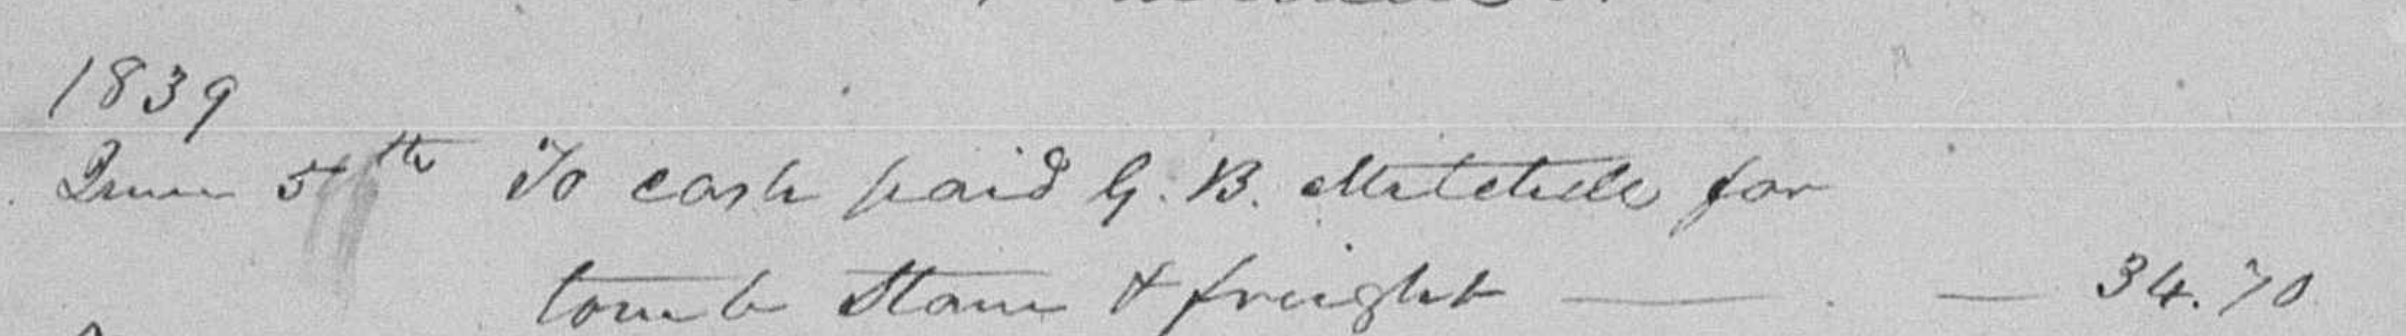 1839
June 5th To cash paid G. B. Mitchell for
tomb Stone & freight — . — 34.70